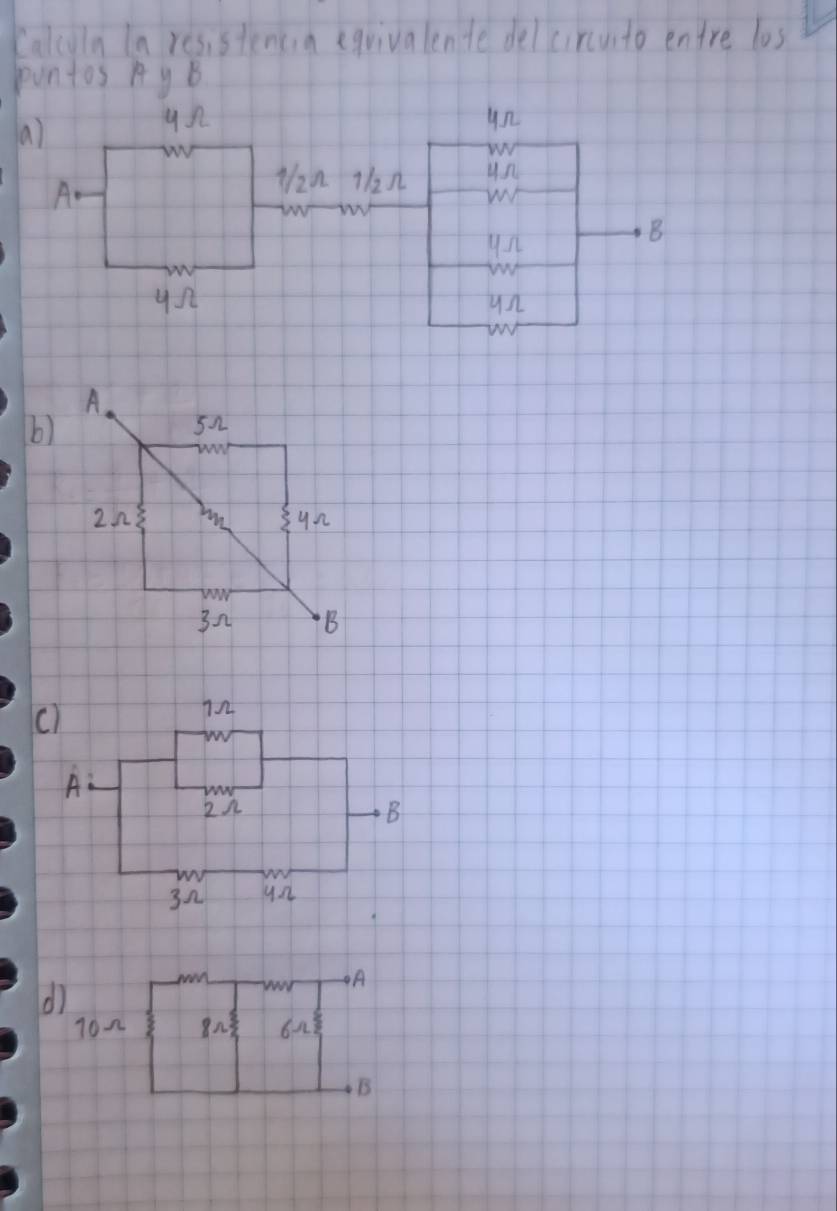 Calcula la resistencia equivalente del circuito entre los
puntos A y B
a)
4Ω
4Ω
A
1/2Ω 1/2Ω
4Ω
B
4Ω
4Ω
4Ω
A
b)
5Ω
2Ω
4Ω
3Ω
B
c)
1Ω
A
2Ω
B
3Ω 4Ω
A
d)
10Ω
8Ω
6Ω
B